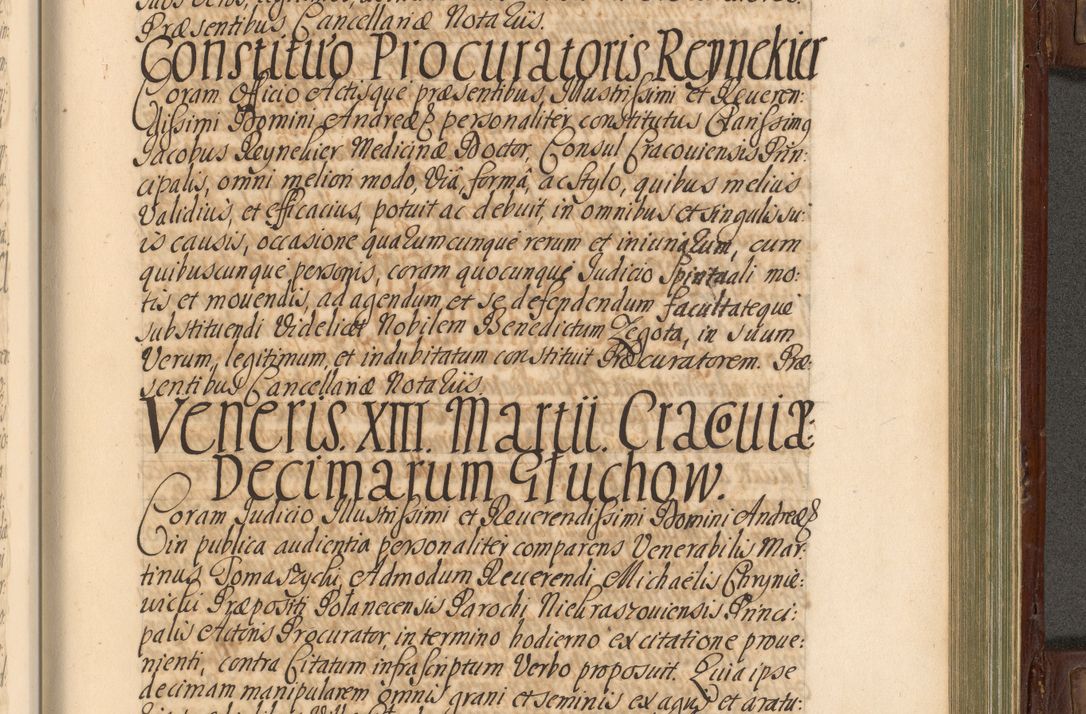 Præsentibus Cancellariæ Notariis.
Constituo Procuratoris Reynekier
Coram Officio Actisque præsentibus, Illustrissimi et Reueren:
dissimi Domini Andreæ &c personaliter constitutus Clarissimq
Jacobus Reynekier Medicinæ Doctor, Consul Cracouiensis Prin:
cipalis, omni meliori modo, viâ, formâ, ac stylo, quibus melius
validius, et efficacius, potuit ac debuit, in omnibus et singulis su:
is causis, occasione quarumcunque rerum et iniuriarum, cum
quibuscunque personis, coram quocunque Judicio Spirituali mo:
tis et mouendis, ad agendum et se defendendum facultateque
substituendi videlicet Nobilem Benedictum Zegota, in suum
verum, legitimum, et indubitatum constituit Procuratorem. Præ:
sentibus Cancellariæ Notariis.
Veneris. XIII. Martii. Cracouiæ:
Decimarum Głuchow.
Coram Judicio Illustrissimi et Reuerendissimi Domini Andreæ &
in publica audientia personaliter comparens Venerabilis Mar:
tinus Tomaszycki, Admodum Reuerendi Michaëlis Chrynie:
uicki Præpositi Połanecensis Parochi Niekraszouiensis Princi:
palis Actoris Procurator, in termino hodierno ex citatione proue:
nienti, contra Citatum infrascriptum Verbo proposuit. Quia ipse
decimam manipularem omnis grani et seminis ex agris et aratu: